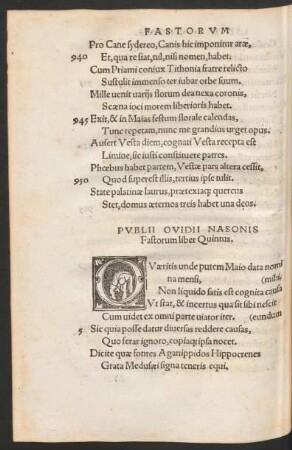 FASTORVM
Pro Cane sydereo, Canis hic imponitur aræ,
940 Et, qua re fiat, nil, nisi nomen, habet.
Cum Priami coniux Tithonia fratre relicto
Sustulit immenso ter iubar orbe suum.
Mille uenit uarijs florum dea nexa coronis,
Scæna ioci morem liberioris habet.
945 Exit, & in Maias festum florale calendas,
Tunc repetam, nunc me grandius urget opus.
Aufert Vesta diem, cognati Vesta recepta est
Limine, sic iusti constituere patres.
Phœbus habet partem, Vestæ pars altera cessit,
950 Quod superest illis, tertius ipse tulit.
State palatinæ laurus, prætextaq; quercu
Stet, domus æternos treis habet una deos.
PVBLII OVIDII NASONIS
Fastorum liber Quintus.
QVæritis unde putem Maio data nomina
na mensi, (mihi,
Non liquido satis est cognita causa
Vt stat, & incertus qua sit sibi nescit
Cum uidet ex omni parte uiator iter. (eundum
5 Sic quia posse datur diuersas reddere causas,
Quo ferar ignoro, copiaq; ipsa nocet.
Dicite quæ fontes Aganippidos Hippocrenes
Grata Medusæi signa teneris equi.